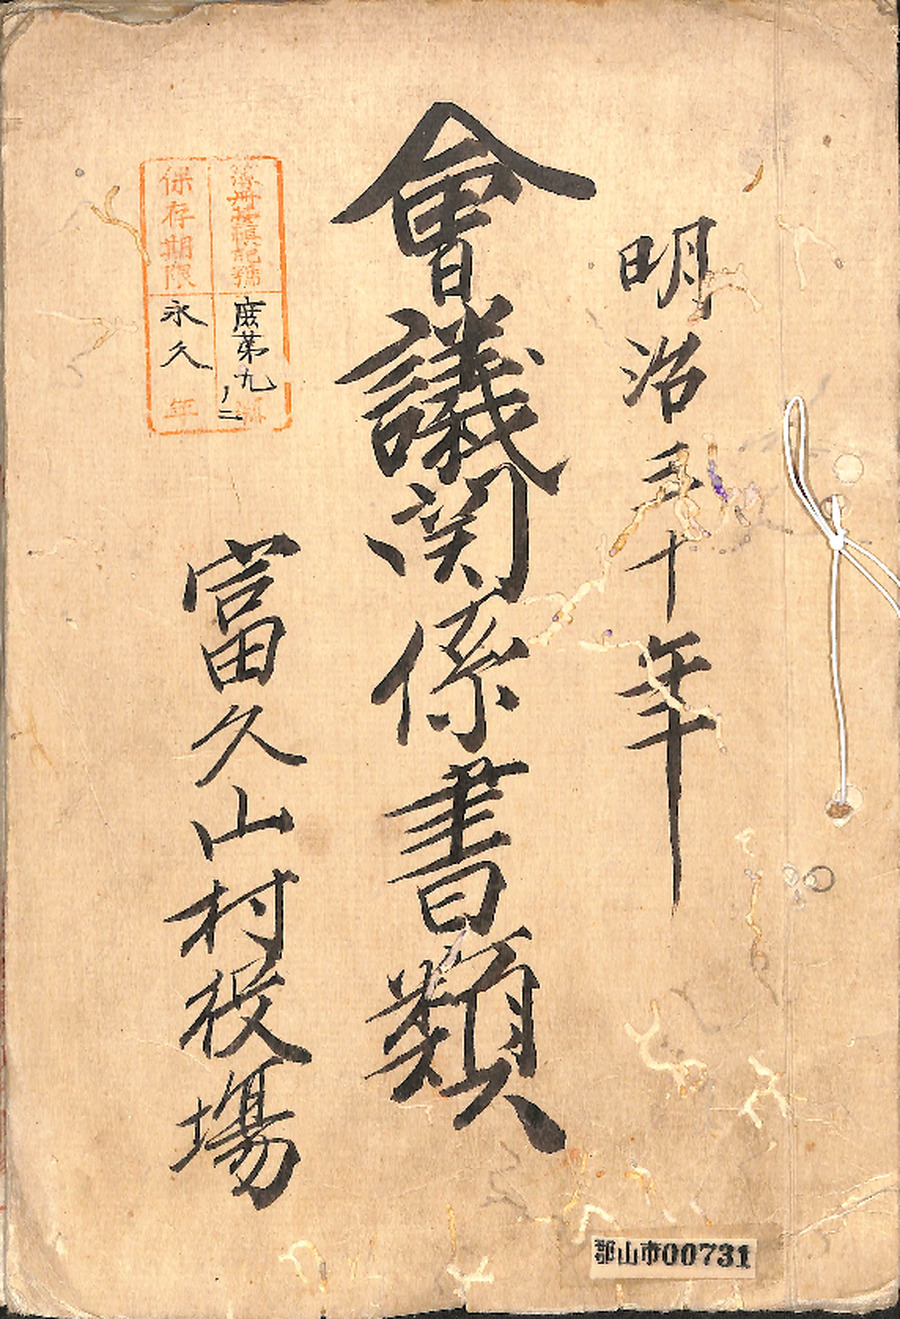 明治三十年
會議関係書類
富久山村役場
記號 庶第九ノ二
保存期限 永久 年
郡山市00731